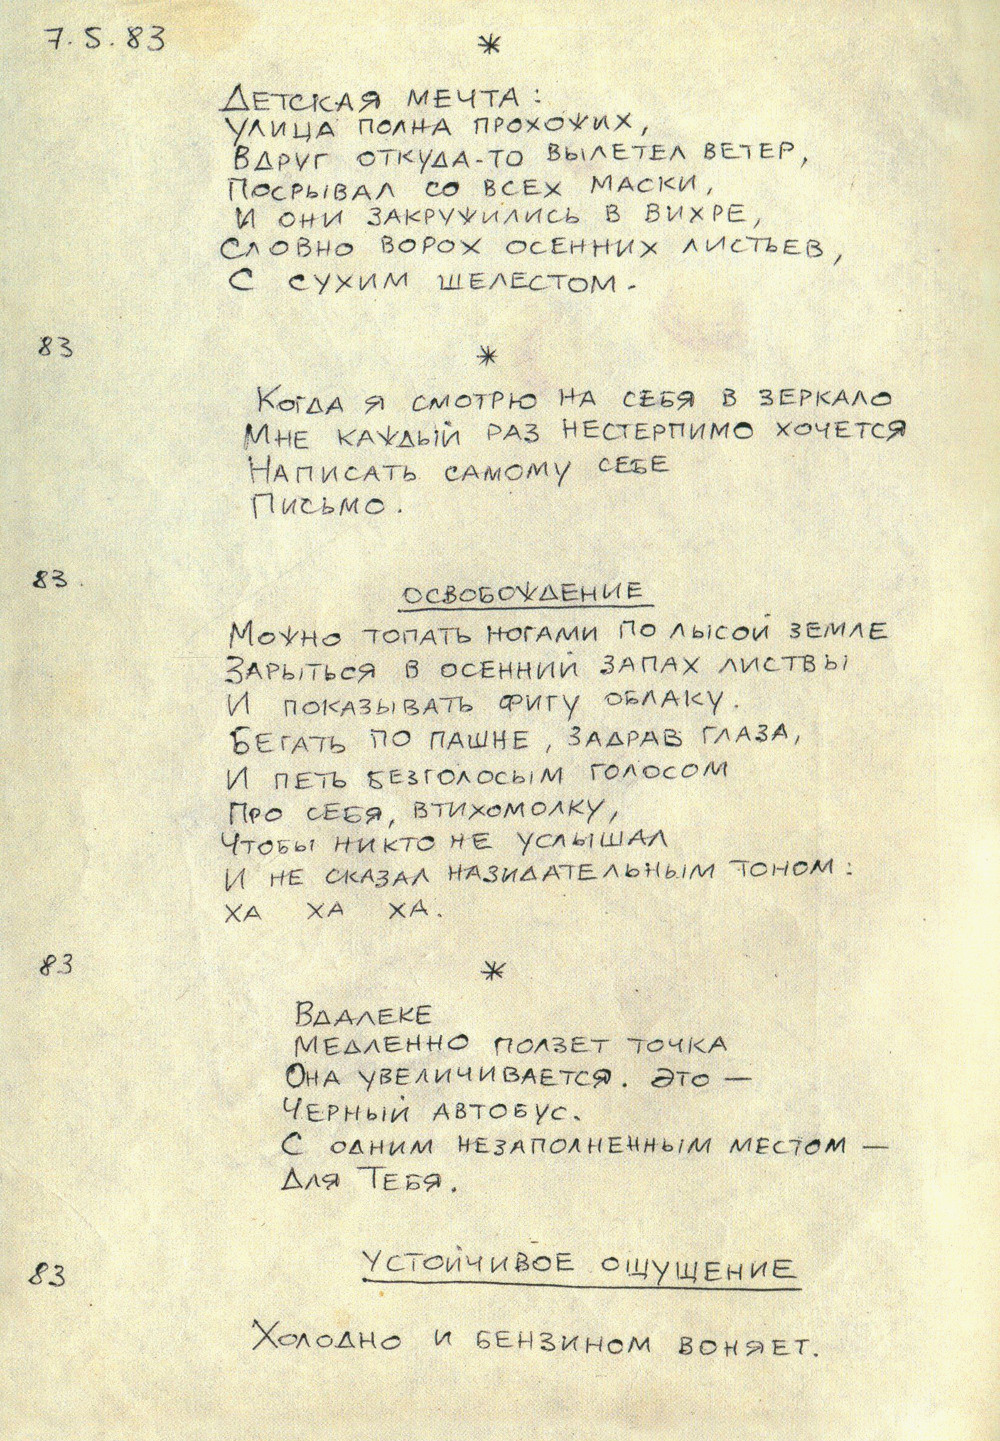 7.5.83
*
Детская мечта:
улица полна прохожих,
вдруг откуда-то вылетел ветер,
Посрывал со всех маски,
и они закружились в вихре,
словно ворох осенних листьев,
с сухим шелестом.
83
*
Когда я смотрю на себя в зеркало
Мне каждый раз нестерпимо хочется
Написать самому себе
Письмо.
83.
ОСВОБОЖДЕНИЕ
Можно топать ногами по лысой земле
Зарыться в осенний запах листвы
И показывать фигу облаку.
Бегать по пашне, задрав глаза,
И петь безголосым голосом
Про себя, втихомолку,
Чтобы никто не услышал
И не сказал назидательным тоном:
ха ха ха.
83
*
Вдалеке
медленно ползет точка
Она увеличивается. Это —
Черный автобус.
С одним незаполненным местом —
Для Тебя.
83
УСТОЙЧИВОЕ ОЩУЩЕНИЕ
Холодно и бензином воняет.